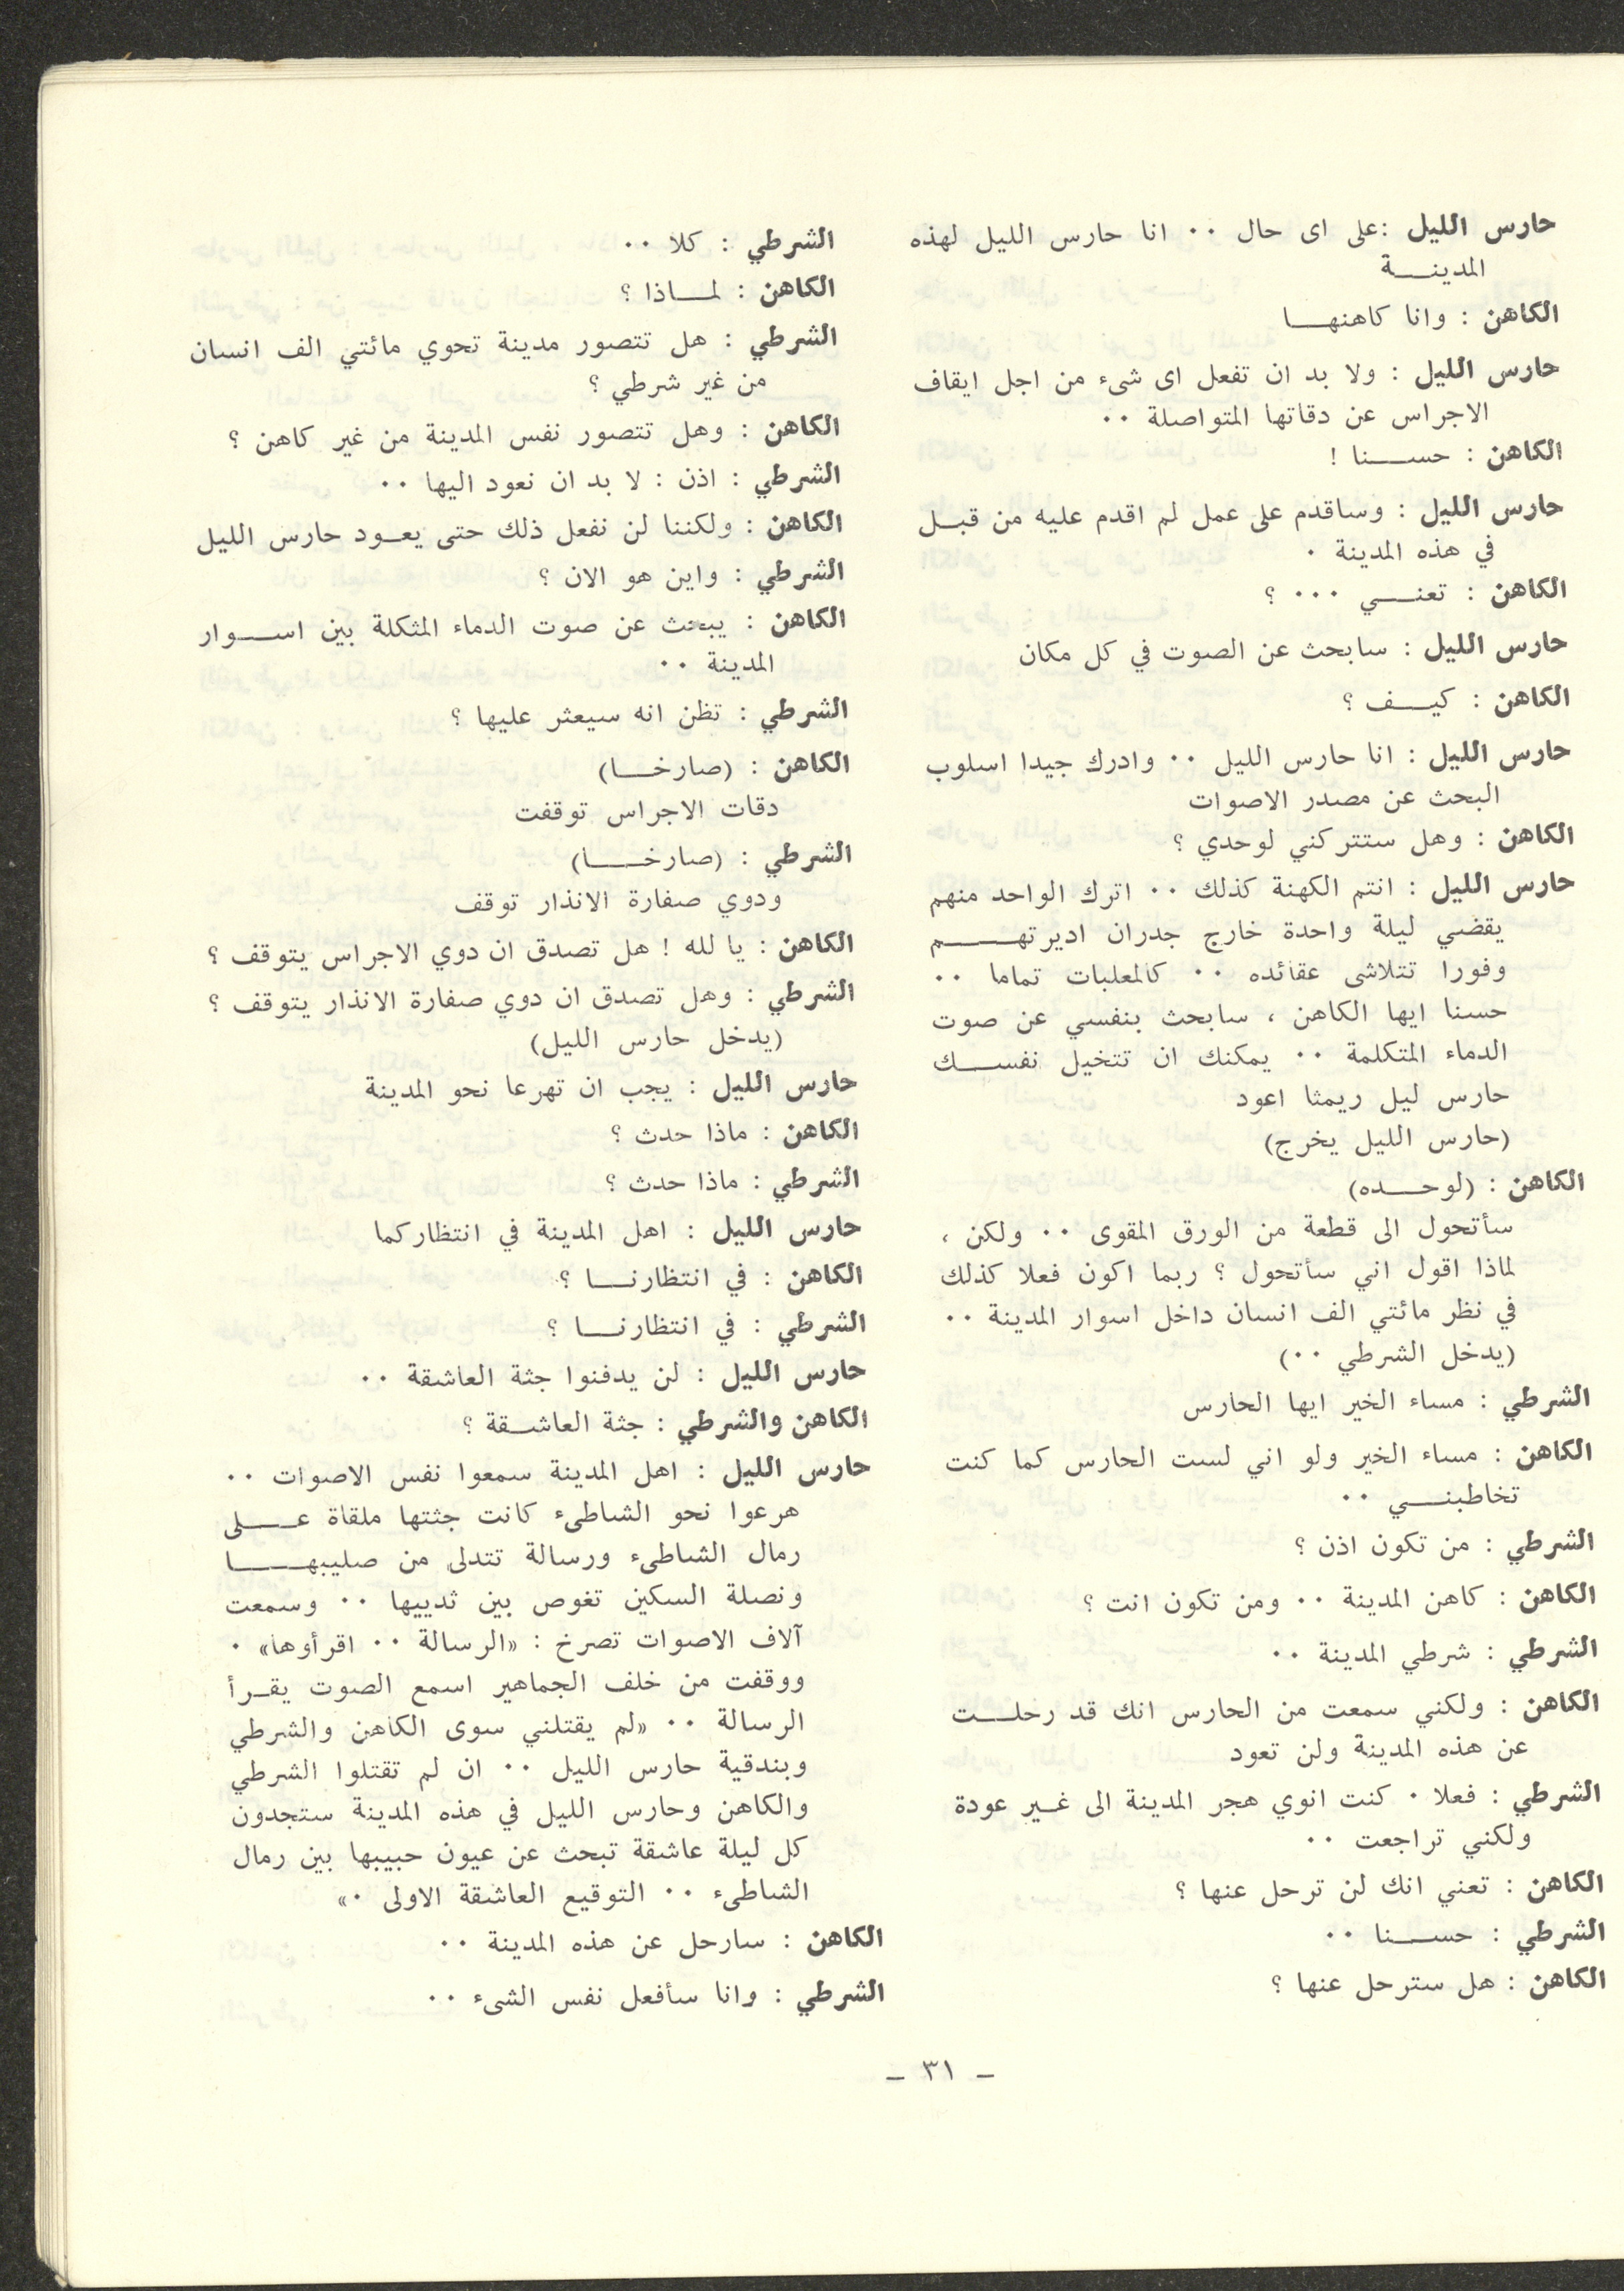 حارس الليل : على اى حال ٠٠ انا حارس الليل لهذه
المدينة
الكاهن : وانا كاهنها
حارس الليل : ولا بد ان تفعل اى شىء من اجل ايقاف
الاجراس عن دقاتها المتواصلة ٠٠
الكاهن : حسنا !
حارس الليل : وساقدم على عمل لم اقدم عليه من قبل
في هذه المدينة ٠
الكاهن : تعني ٠٠٠ ؟
حارس الليل : سابحث عن الصوت في كل مكان
الكاهن : كيف ؟
حارس الليل : انا حارس الليل ٠٠ وادرك جيدا اسلوب
البحث عن مصدر الاصوات
الكاهن : وهل ستتركني لوحدي ؟
حارس الليل : انتم الكهنة كذلك ٠٠ اترك الواحد منهم
يقضي ليلة واحدة خارج جدران اديرتهم
وفورا تتلاشى عقائده ٠٠ كالمعلبات تماما ٠٠
حسنا ايها الكاهن ، سابحث بنفسي عن صوت
الدماء المتكلمة ٠٠ يمكنك ان تتخيل نفسك
حارس ليل ريمثا اعود
(حارس الليل يخرج)
الكاهن : (لوحده)
سأتحول الى قطعة من الورق المقوى ٠٠ ولكن ،
لماذا اقول اني سأتحول ؟ ربما اكون فعلا كذلك
في نظر مائتي الف انسان داخل اسوار المدينة ٠٠
(يدخل الشرطي ٠٠)
الشرطي : مساء الخير ايها الحارس
الكاهن : مساء الخير ولو اني لست الحارس كما كنت
تخاطبني ٠٠
الشرطي : من تكون اذن ؟
الكاهن : كاهن المدينة ٠٠ ومن تكون انت ؟
الشرطي : شرطي المدينة ٠٠
الكاهن : ولكني سمعت من الحارس انك قد رحلت
عن هذه المدينة ولن تعود
الشرطي : فعلا ٠ كنت انوي هجر المدينة الى غير عودة
ولكني تراجعت ٠٠
الكاهن : تعني انك لن ترحل عنها ؟
الشرطي : حسنا ٠٠
الكاهن : هل سترحل عنها ؟
الشرطي : كلا ٠٠
الكاهن : لماذا ؟
الشرطي : هل تتصور مدينة تحوي مائتي الف انسان
من غير شرطي ؟
الكاهن : وهل تتصور نفس المدينة من غير كاهن ؟
الشرطي : اذن : لا بد ان نعود اليها ٠٠
الكاهن : ولكننا لن نفعل ذلك حتى يعود حارس الليل
الشرطي : واين هو الان ؟
الكاهن : يبحث عن صوت الدماء المثكلة بين اسوار
المدينة ٠٠
الشرطي : تظن انه سيعثر عليها ؟
الكاهن : (صارخا)
دقات الاجراس توقفت
الشرطي : (صارخا)
ودوي صفارة الانذار توقف
الكاهن : يا لله ! هل تصدق ان دوي الاجراس يتوقف ؟
الشرطي : وهل تصدق ان دوي صفارة الانذار يتوقف ؟
(يدخل حارس الليل)
حارس الليل : يجب ان تهرعا نحو المدينة
الكاهن : ماذا حدث ؟
الشرطي : ماذا حدث ؟
حارس الليل : اهل المدينة في انتظاركما
الكاهن : في انتظارنا ؟
الشرطي : في انتظارنا ؟
حارس الليل : لن يدفنوا جثة العاشقة ٠٠
الكاهن والشرطي : جثة العاشقة ؟
حارس الليل : اهل المدينة سمعوا نفس الاصوات ٠٠
هرعوا نحو الشاطىء كانت جثتها ملقاة على
رمال الشاطىء ورسالة تتدلى من صليبها
ونصلة السكين تغوص بين ثدييها ٠٠ وسمعت
آلاف الاصوات تصرخ : «الرسالة ٠٠ اقرأوها» ٠
ووقفت من خلف الجماهير اسمع الصوت يقرأ
الرسالة ٠٠ «لم يقتلني سوى الكاهن والشرطي
وبندقية حارس الليل ٠٠ ان لم تقتلوا الشرطي
والكاهن وحارس الليل في هذه المدينة ستجدون
كل ليلة عاشقة تبحث عن عيون حبيبها بين رمال
الشاطىء ٠٠ التوقيع العاشقة الاولى ٠»
الكاهن : سارحل عن هذه المدينة ٠٠
الشرطي : وانا سأفعل نفس الشىء ٠٠
ـ ٣١ ـ